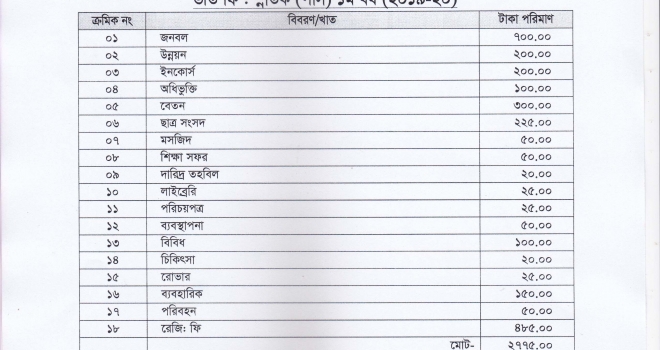 ভর্তি ফি : স্নাতক (পাস) ১ম বর্ষ (২০১৯-২০)
ক্রমিক নং বিবরণ/খাত টাকা পরিমাণ
০১ জনবল ৭০০.০০
০২ উন্নয়ন ২০০.০০
০৩ ইনকোর্স ২০০.০০
০৪ অধিভুক্তি ১০০.০০
০৫ বেতন ৩০০.০০
০৬ ছাত্র সংসদ ২২৫.০০
০৭ মসজিদ ৫০.০০
০৮ শিক্ষা সফর ৫০.০০
০৯ দারিদ্র তহবিল ২০.০০
১০ লাইব্রেরি ২৫.০০
১১ পরিচয়পত্র ২৫.০০
১২ ব্যবস্থাপনা ৫০.০০
১৩ বিবিধ ১০০.০০
১৪ চিকিৎসা ২০.০০
১৫ রোভার ২৫.০০
১৬ ব্যবহারিক ১৫০.০০
১৭ পরিবহন ৫০.০০
১৮ রেজি: ফি ৪৮৫.০০
মোট- ২৭৭৫.০০